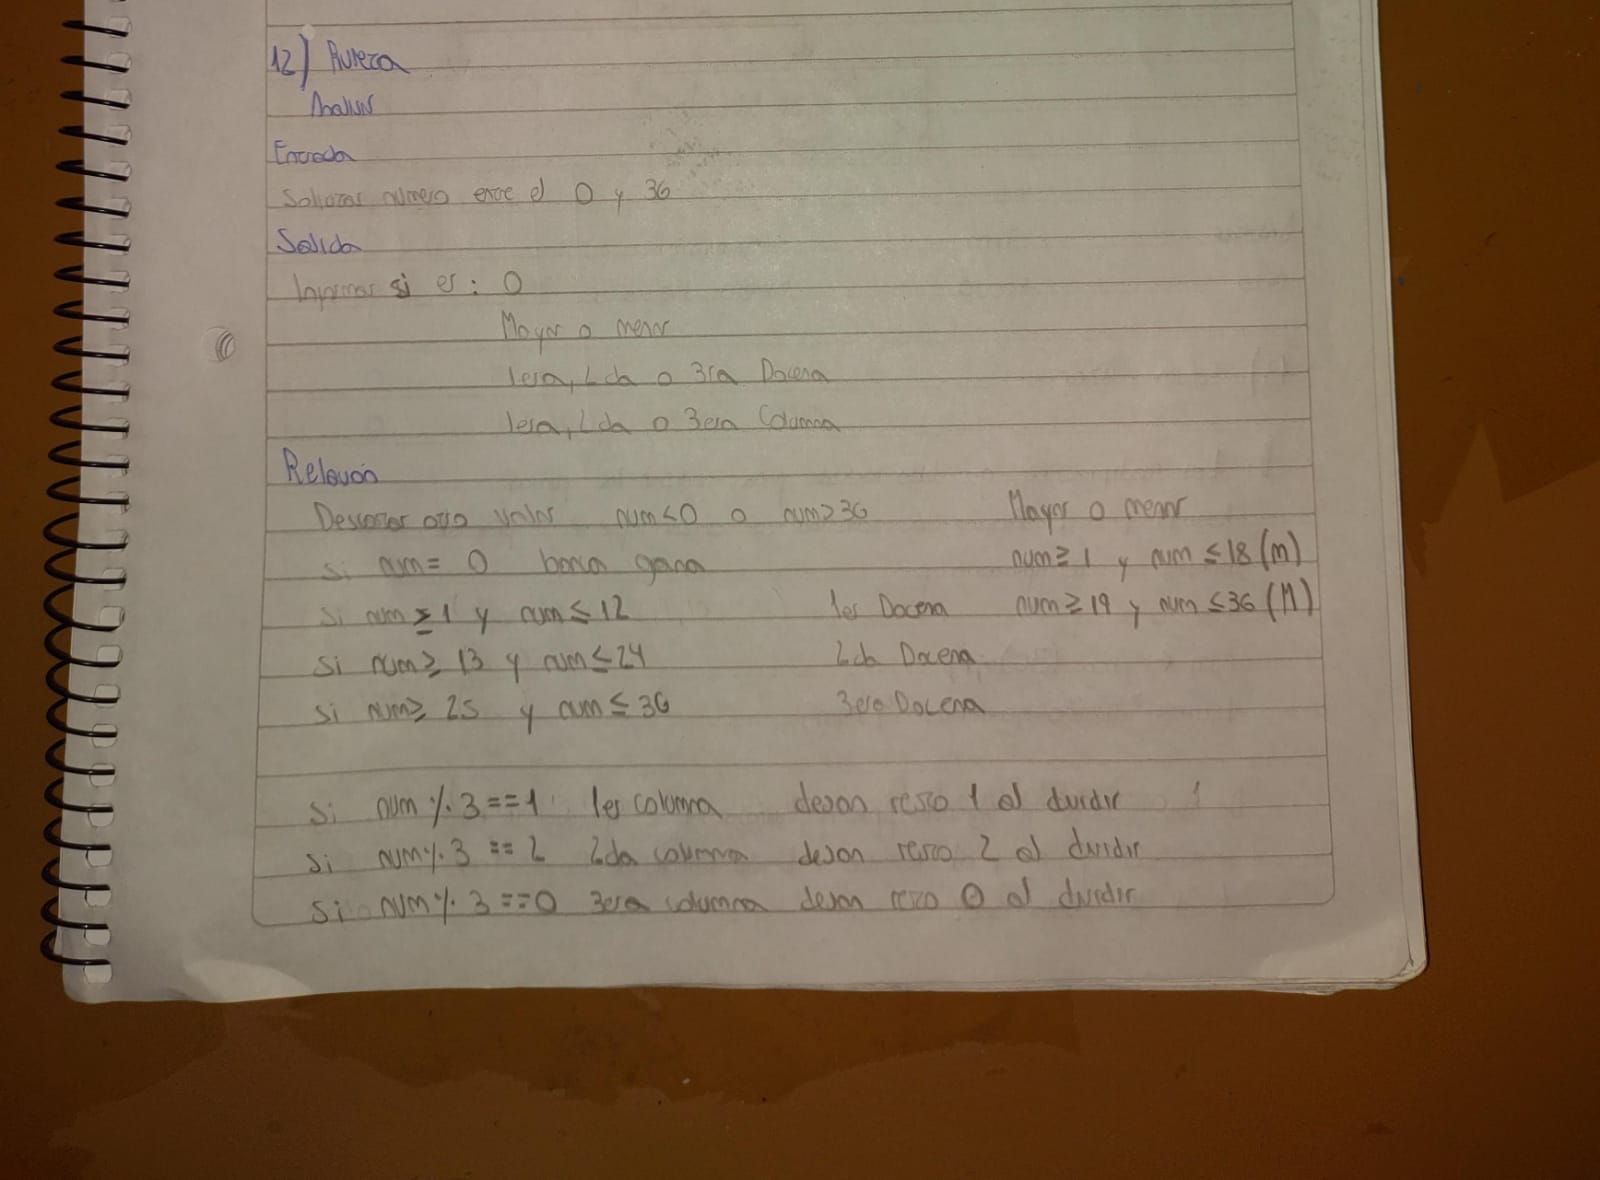 12) Ruleza
Analisis
Entrada
Solicitar numero entre el 0 y 36
Salida
Informar si es: 0
Mayor o menor
1era, 2da o 3ra Docena
1era, 2da o 3era Columna
Relación
Descartar otro valor num<0 o num>36 Mayor o menor
si num = 0 banca gana num≥1 y num ≤18 (m)
si num ≥1 y num ≤ 12 1er Docena num≥19 y num ≤36 (M)
si num≥ 13 y num ≤24 2da Docena
si num≥ 25 y num ≤ 36 3era Docena
si num % 3 ==1 1er columna dejan resto 1 al dividir
si num % 3 == 2 2da columna dejan resto 2 al dividir
si num % 3 ==0 3era columna dejan resto 0 al dividir